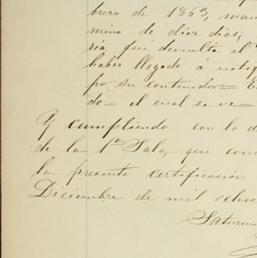 brero de 1863, man
mino de diez dias,
ria, fué devuelta al
haber llegado á notifi
po su contenido= E
do= el cual se ve
Y cumpliendo con lo d
de la 1ª Sala, que con
la presente certificacion
Diciembre de mil ochoc
Saturn